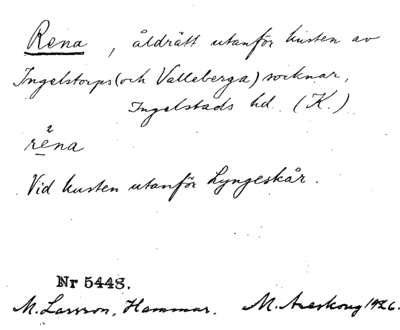 Rena, åldrätt utanför kusten av
Ingelstorps (och Valleberga) socknar,
Ingelstads hd. (K.)
rèna
Vid kusten utanför Lyngeskår.
Nr 5448.
M. Larsson, Hammar. M. Areskoug 1926.